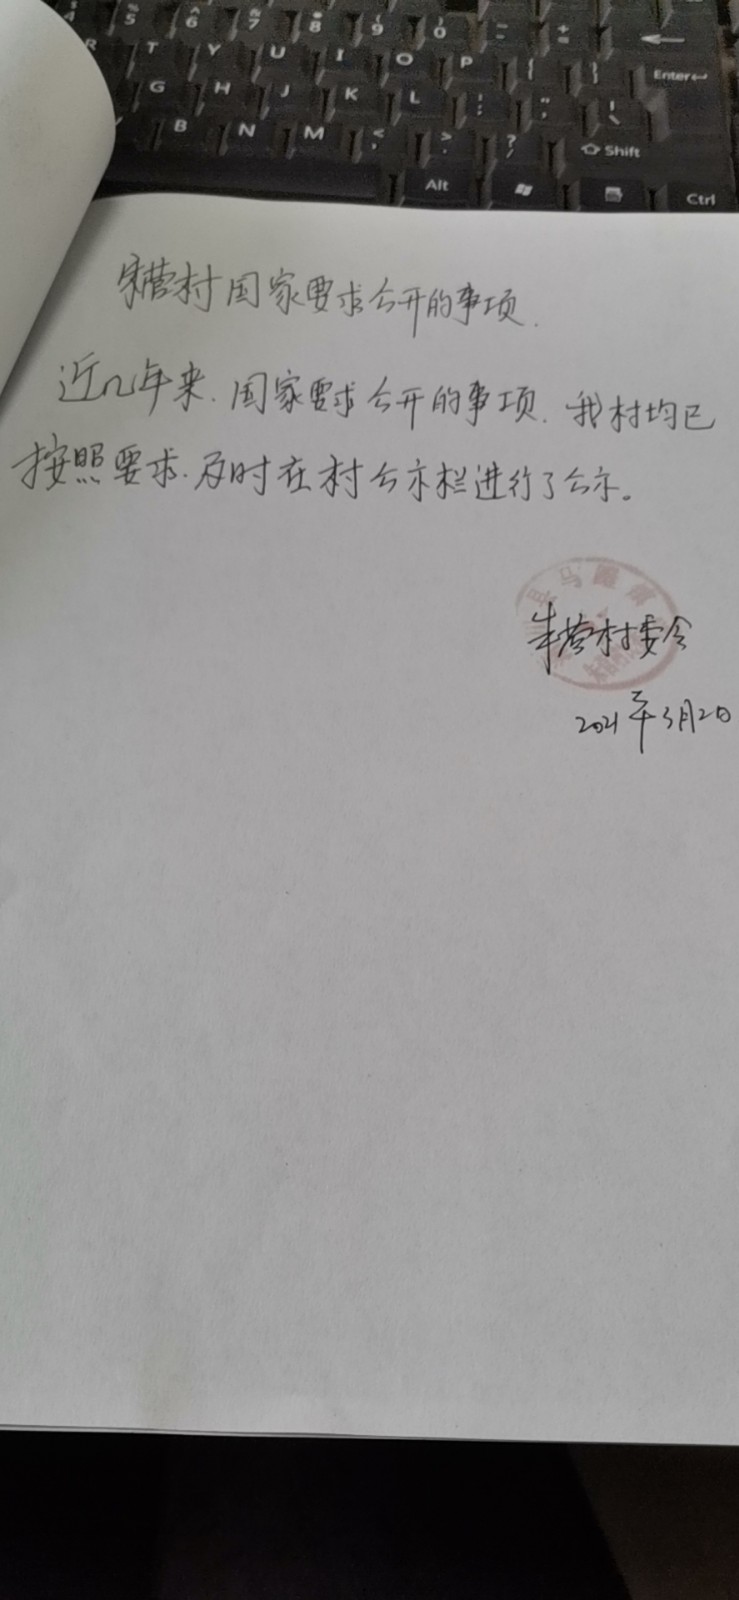 $ 4 % 5 ^ 6 & 7 * 8 ( 9 ) 0 - = +
R T Y U I O P { } Enter
G H J K L : ; " ' | \
B N M < , > . ? / Shift
Alt Ctrl
营村国家要求公开的事项.
近几年来.国家要求公开的事项.我村均已
按照要求.及时在村公示栏进行了公示。
县马
营村委会
2021年3月2日